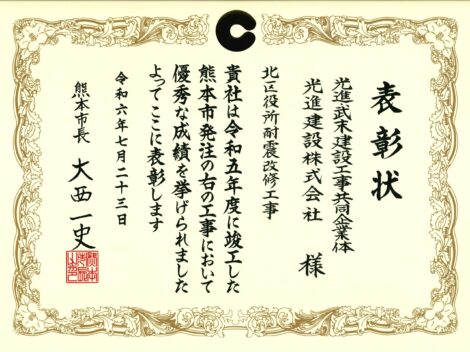 表彰状
光進武末建設工事共同企業体
光進建設株式会社
様
北区役所耐震改修工事
貴社は令和五年度に竣工した
熊本市発注の右の工事において
優秀な成績を挙げられました
よってここに表彰します
令和六年七月二十三日
熊本市長 大西一史